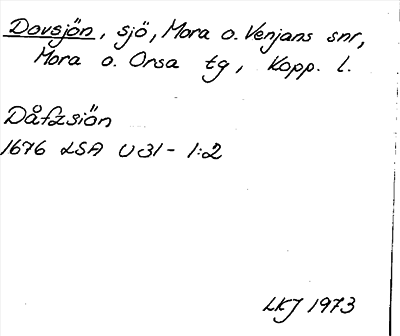 Dovsjön, sjö, Mora o. Venjans snr,
Mora o. Orsa tg, Kopp. l.
Dåfzsiön
1676 LSA U31-1:2
LKJ 1973